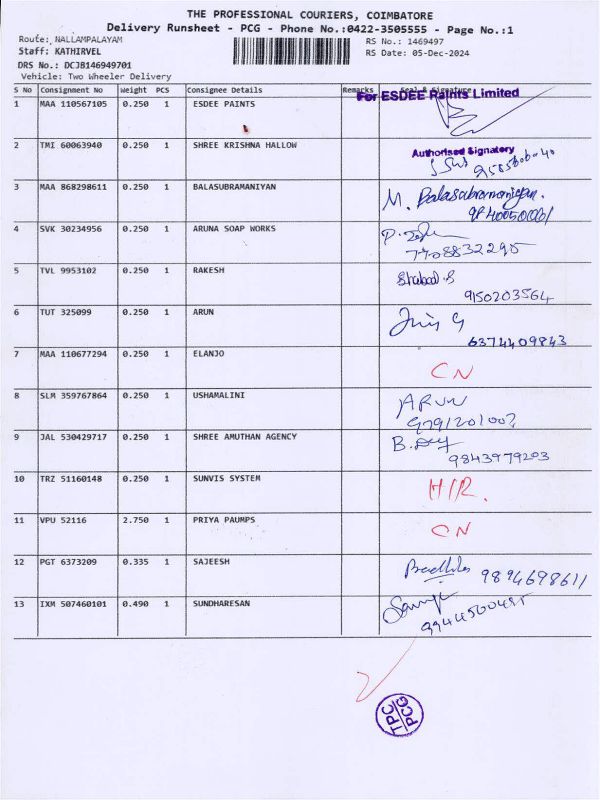 THE PROFESSIONAL COURIERS, COIMBATORE
Delivery Runsheet - PCG - Phone No.:0422-3505555 - Page No.:1
Route: NALLAMPALAYAM
RS No.: 1469497
Staff: KATHIRVEL
RS Date: 05-Dec-2024
DRS No.: DCJB146949701
Vehicle: Two Wheeler Delivery
S No Consignment No Weight PCS Consignee Details Remarks Seal & Signature
For ESDEE Paints Limited
1 MAA 110567105 0.250 1 ESDEE PAINTS
Authorised Signatory
2 TMI 60063940 0.250 1 SHREE KRISHNA HALLOW
3 MAA 868298611 0.250 1 BALASUBRAMANIYAN M. Balasubramaniyan.
4 SVK 30234956 0.250 1 ARUNA SOAP WORKS
7708832295
5 TVL 9953102 0.250 1 RAKESH
9150203564
6 TUT 325099 0.250 1 ARUN
6374409843
7 MAA 110677294 0.250 1 ELANJO
CN
8 SLM 359767864 0.250 1 USHAMALINI ARUN
9791201002
9 JAL 530429717 0.250 1 SHREE AMUTHAN AGENCY
9843979203
10 TRZ 51160148 0.250 1 SUNVIS SYSTEM H/R.
11 VPU 52116 2.750 1 PRIYA PAUMPS CN
12 PGT 6373209 0.335 1 SAJEESH
9894698611
13 IXM 507460101 0.490 1 SUNDHARESAN
TPC
PCG